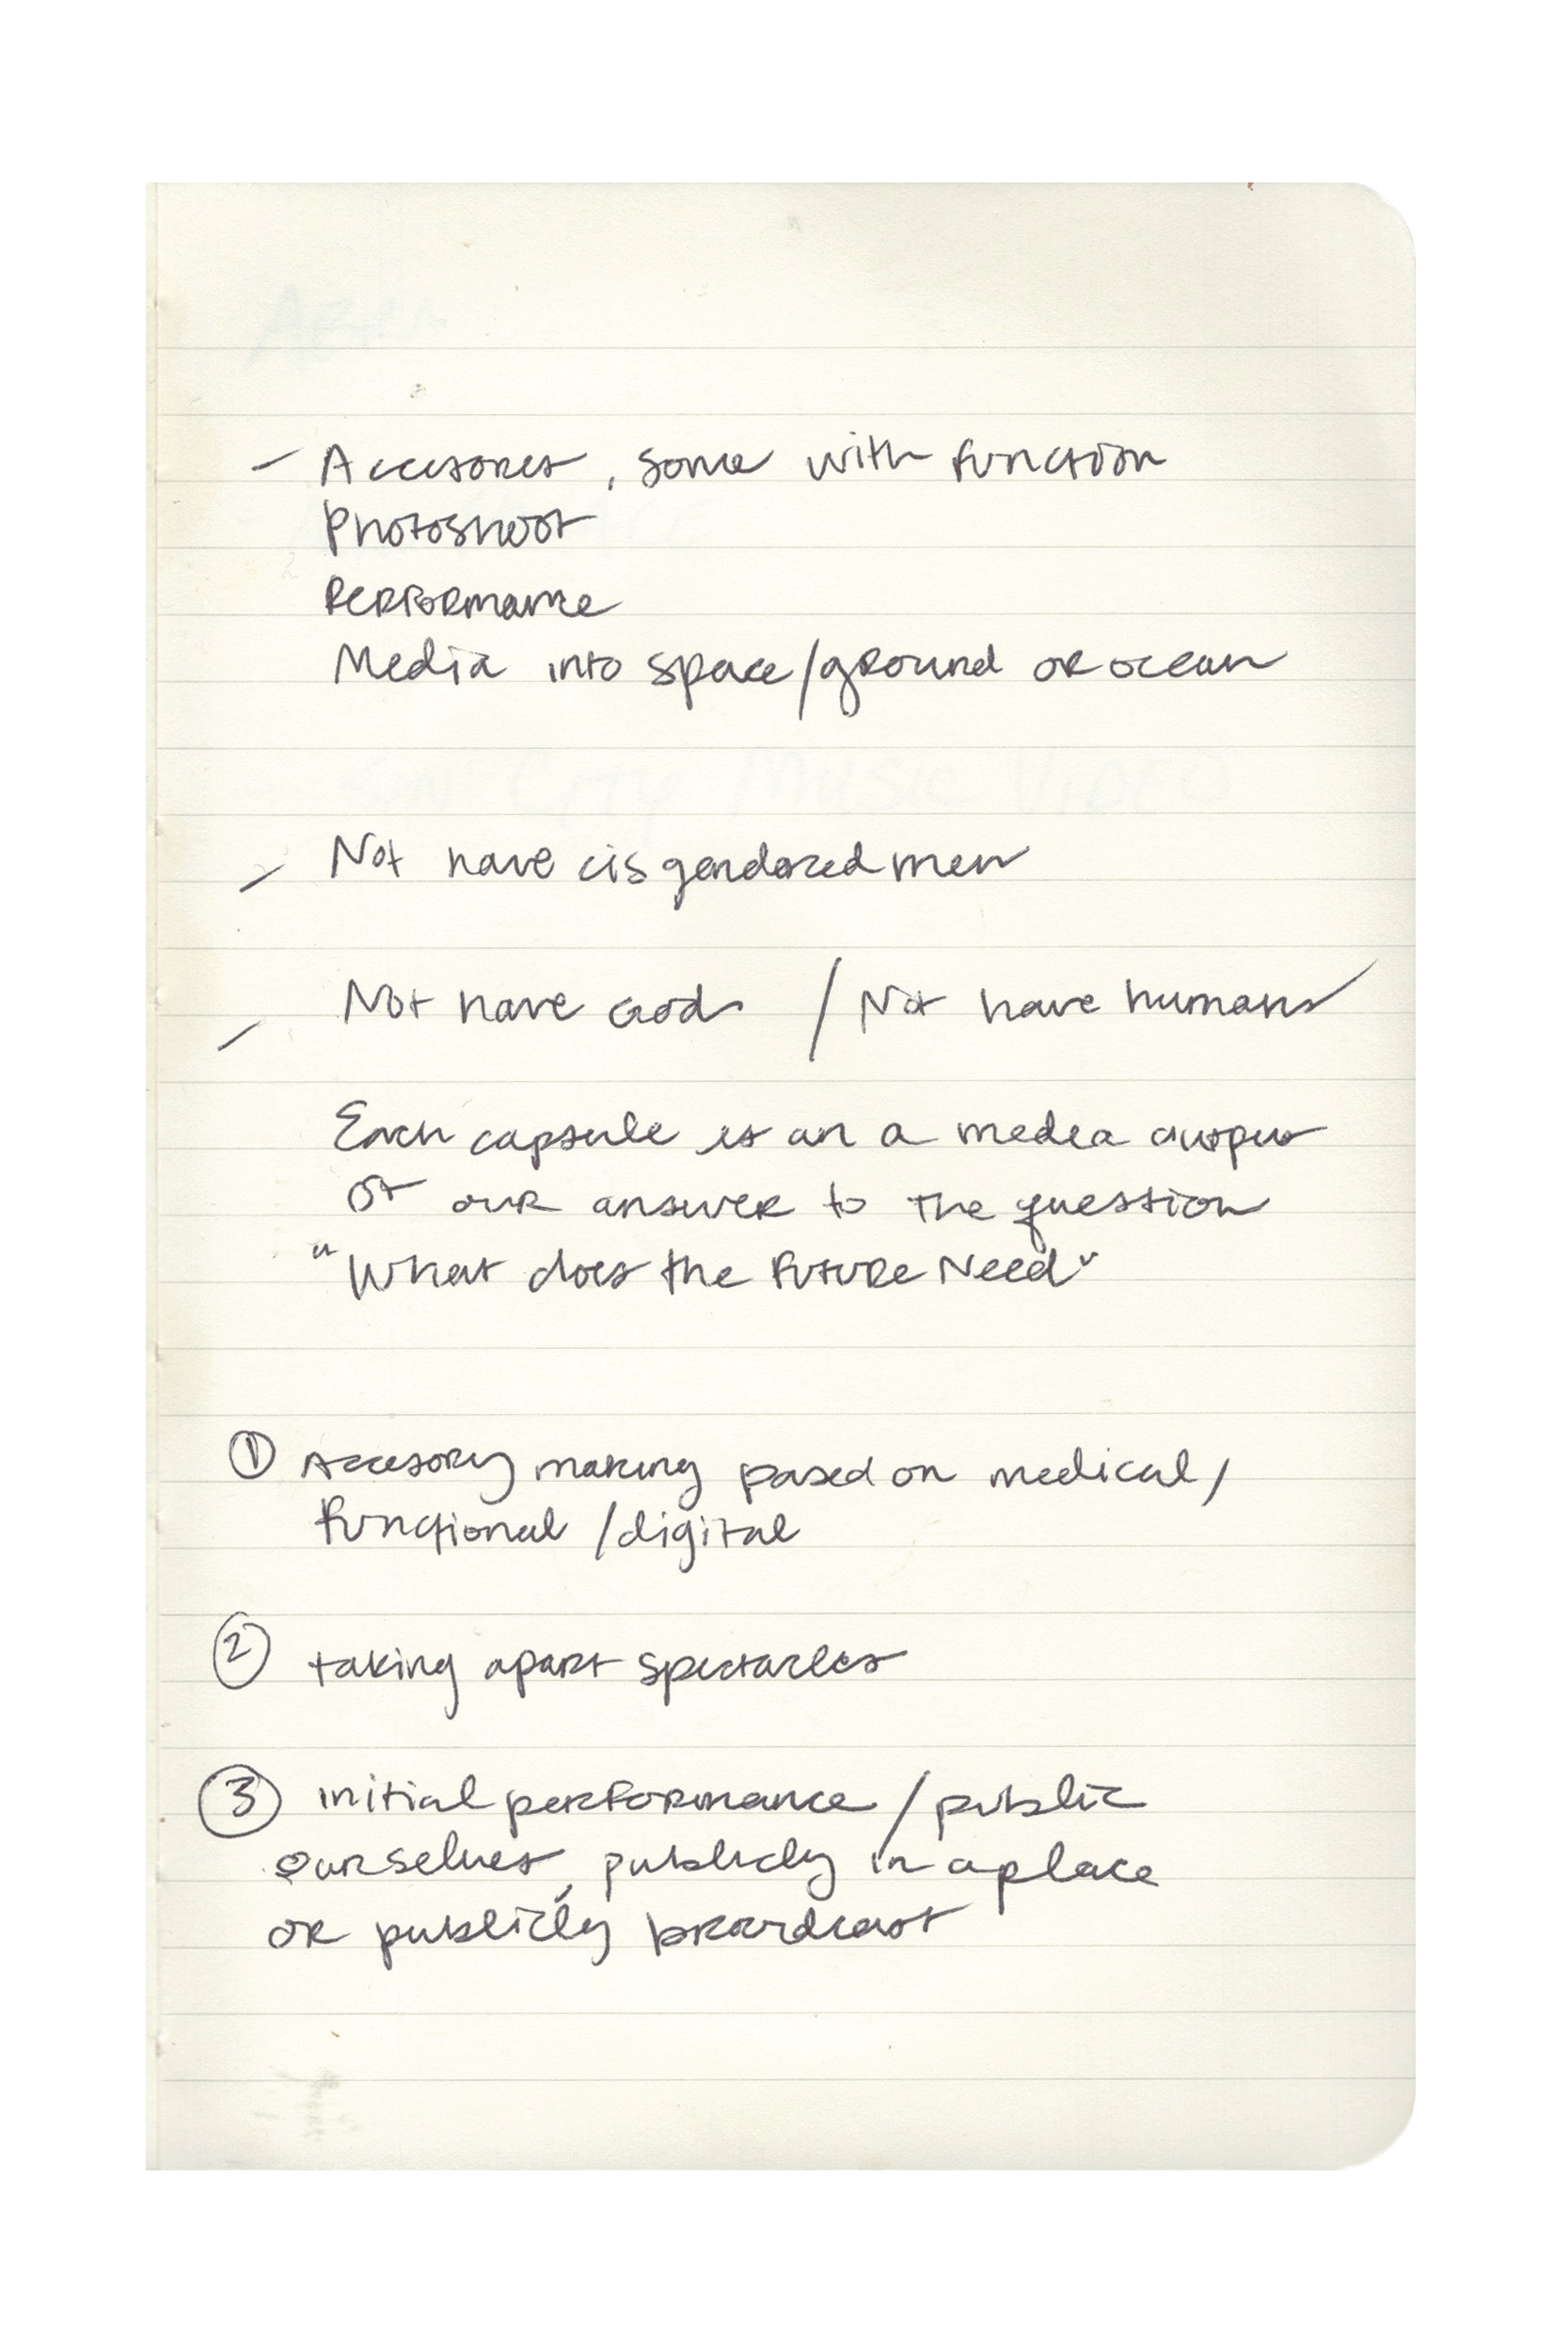 - Accesories, some with function
Photoshoot
Performance
Media into space/ground or ocean
SIN City Music VIDEO
- Not have cis gendered men
- Not have Gods / Not have humans
Each capsule is an a media output
of our answer to the question
"What does the Future Need"
① Accesory making based on medical/
functional /digital
② taking apart spectacles
③ initial performance / public
ourselves, publicly in a place
or publicly broardcast